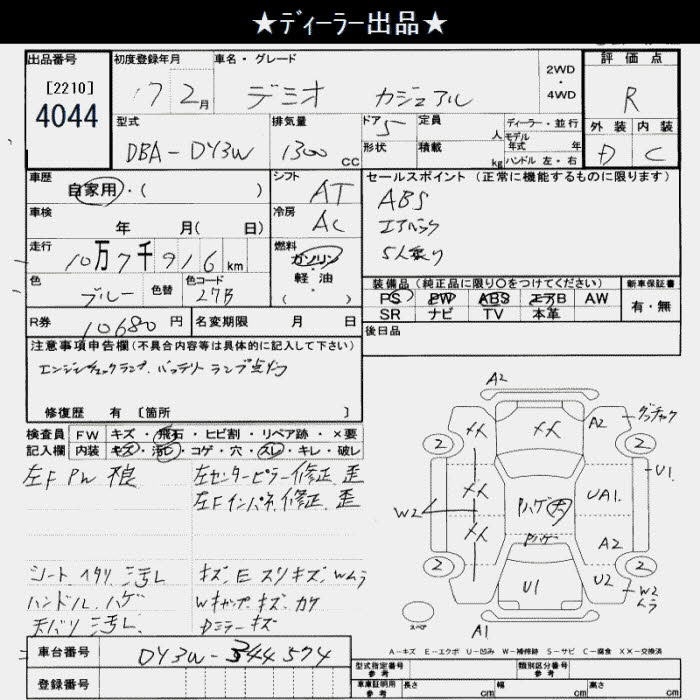 ★ディーラー出品★
出品番号 初度登録年月 車名・グレード 2WD・4WD 評価点
[2210]
4044
17 2月 デミオ カジュアル R
型式 排気量 ドア 5 定員 人 ディーラー・並行 外装 内装
モデル年式 年
DBA-DY3W 1300cc 形状 積載 kg ハンドル 左・右 D C
車歴 シフト セールスポイント(正常に機能するものに限ります)
自家用・( ) AT ABS
車検 冷房 エアバック
年 月( 日) AC 5人乗り
走行 燃料
10万7千916km ガソリン・軽油 ( )
装備品(純正品に限り○をつけてください) 新車保証書
色 色替 色コード PS PW ABS エアB AW 有・無
ブルー 27B SR ナビ TV 本革
R券 10680円 名変期限 月 日 後日品
注意事項申告欄(不具合内容等は具体的に記入して下さい)
エンジンチェックランプ.バッテリーランプ点灯
修復歴 有 [箇所 ]
検査員 FW キズ・飛石・ヒビ割・リペア跡・×要
記入欄 内装 キズ・汚レ・コゲ・穴・スレ・キレ・破レ
左F PW 狼 左センターピラー修正.歪
左Fインパネ.修正.歪
シート.ヘタリ.汚レ キズ.E スリキズ.Wムラ
ハンドル.ハゲ Wキャップ.キズ.カケ
天バリ 汚レ. Dミラーキズ
A2
XX XX A2 ガッチャク
2 2
U1.
XX W2 Pハゲ 大 UA1.
XX Pハゲ A2
2 2
U1 U2 W2ムラ
スペア A1
A-キズ E-エクボ U-凹み W-補修跡 S-サビ C-腐食 XX-交換済
車台番号 DY3W-344574
型式指定番号 参考 類別区分番号 参考
登録番号 車庫証明用 参考 長さ cm 幅 cm 高さ cm